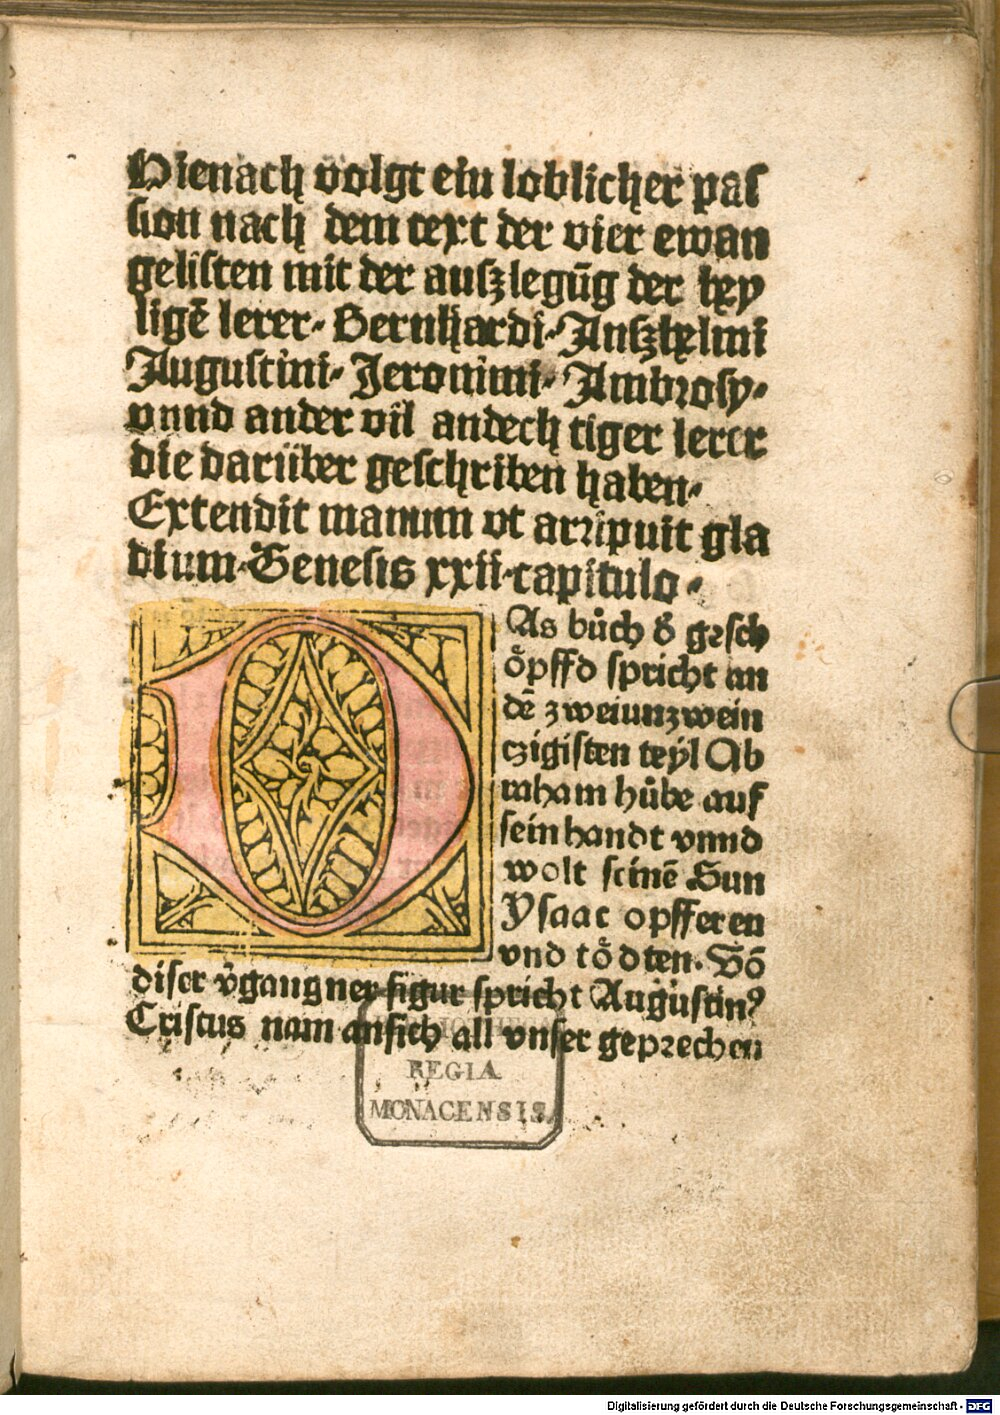 Hienach volgt ein loblicher paſ
ſion nach dem text der vier ewan
geliſten mit der auſzlegūg der hey
ligē lerer. Bernhardi. Anſzhelmi
Auguſtini. Jeronimi. Ambroſy.
vnnd ander vil andech tiger lerer
die darüber geſchriben haben.
Extendit manum vt arripuit gla
dium. Geneſis xxii. capitulo.
DAs bůch d̕ geſch
ȯpffd ſpricht an
dē zweiunzwein
czigiſten teyl Ab
raham hůbe auf
ſein handt vnnd
wolt ſeinē Sun
Yſaac opfferen
vnd tȯdten. Vō
diſer v̄gangner figur ſpricht Auguſtinꝰ
Criſtus nam anſich all vnſer geprechen
BIBLIOTHECA
REGIA
MONACENSIS.
Digitalisierung gefördert durch die Deutsche Forschungsgemeinschaft - DFG